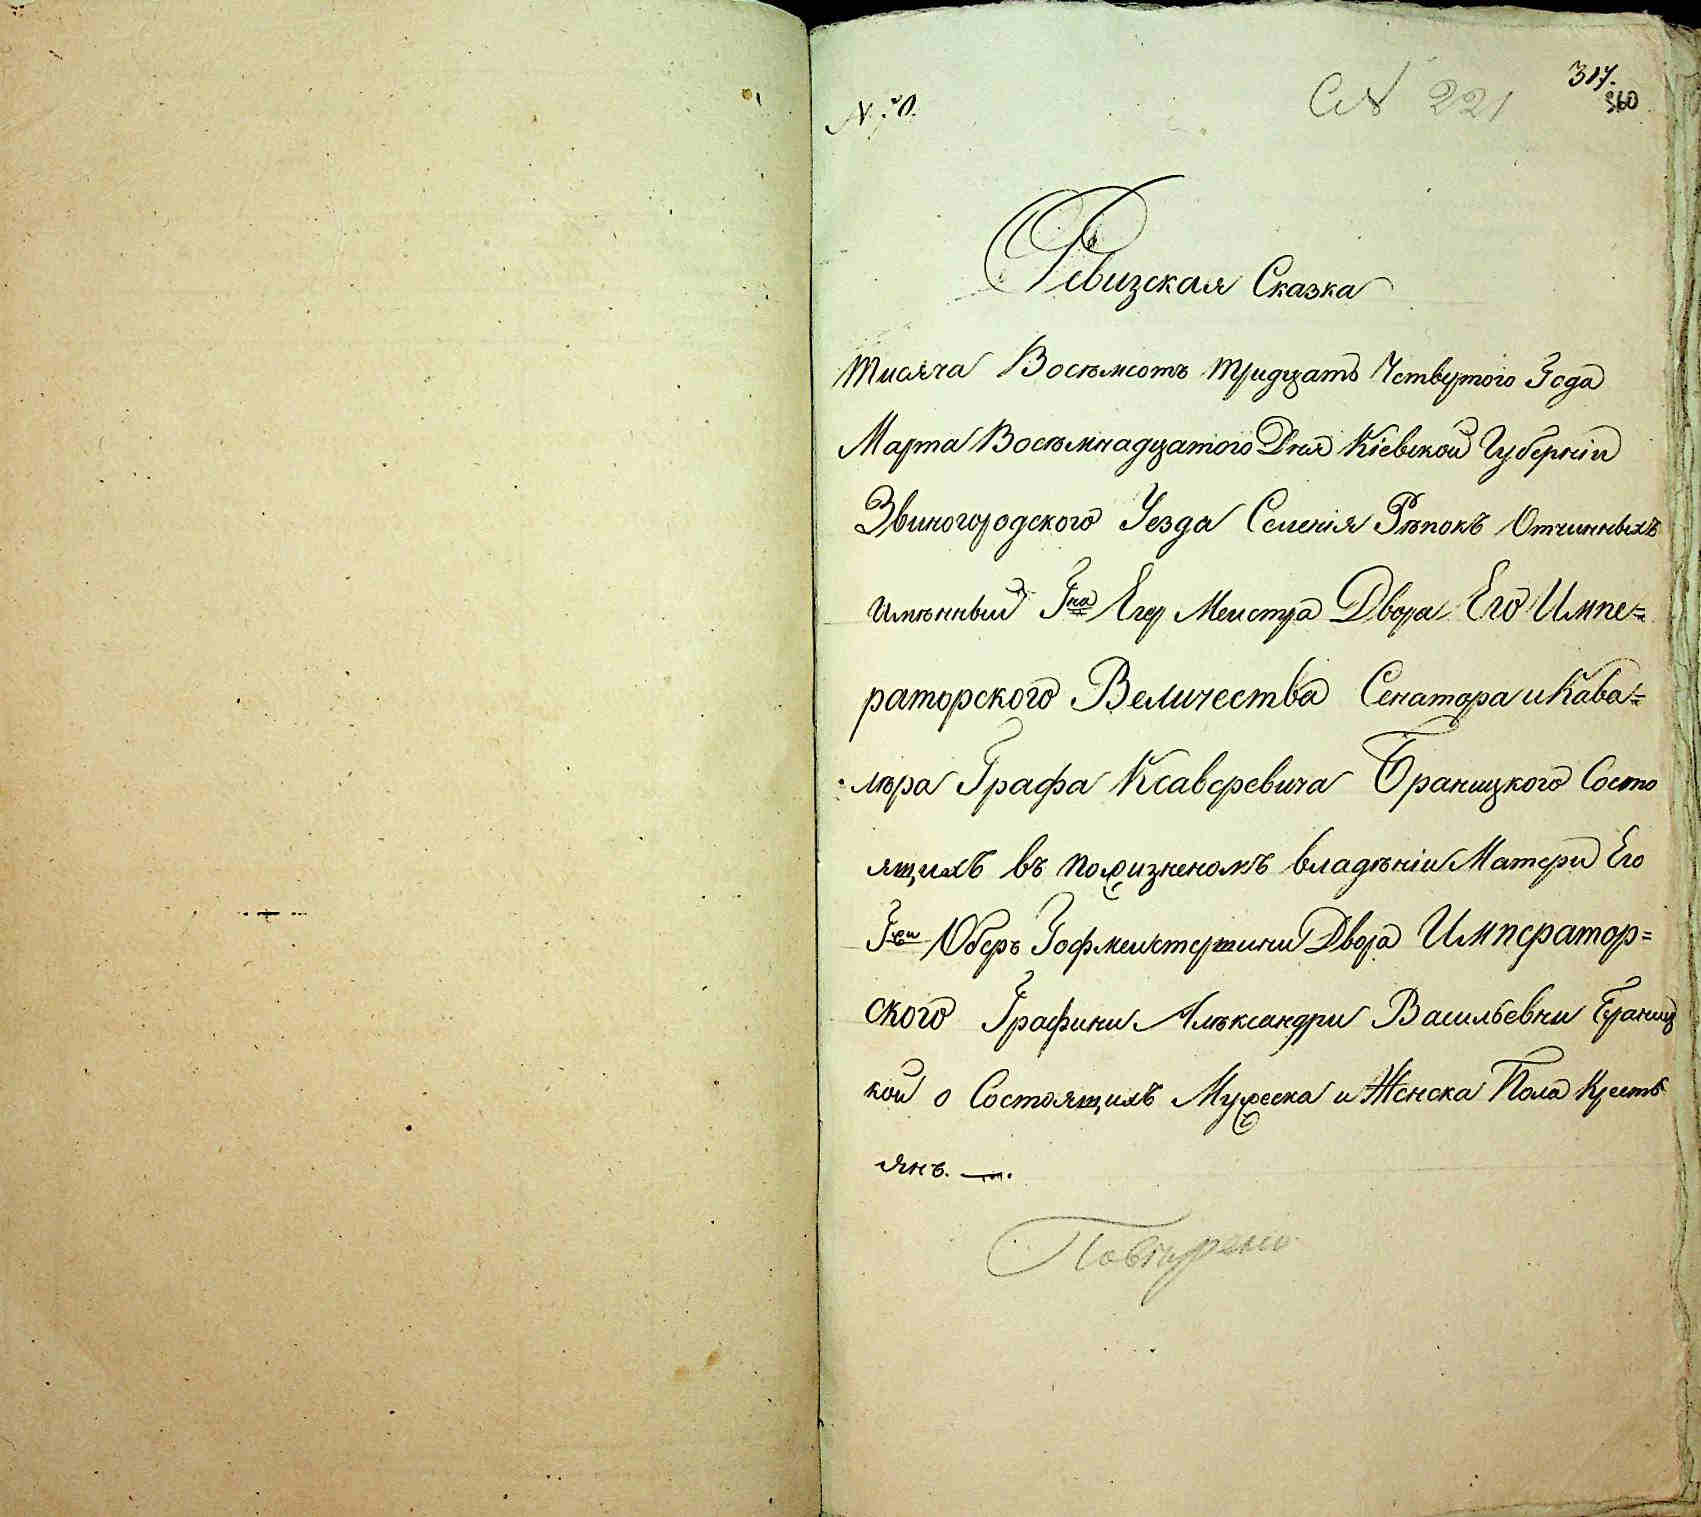 317.
360
СА 221
Ревизская Сказка
тисяча Восемсотъ тридцать Четвертого Года
Марта Восемнадцатого Дня Кіевской Губерніи
Звиногородского Уезда Селенія Рѣпокъ Отчинныхъ
имѣнный Гна Егер Меистра Двора Его Импе=
раторского Величества Сенатора и Кава=
лѣра Графа Ксаверевича Браницкого Состо
ящихъ въ пожизненомъ владѣніи Матери Его
Гжи Оберъ Гофмеистершини Двора Император=
ского Графини Алѣксандри Васильевни Браниц
кой о Состоящихъ Мужеска и Женска Пола Кресть
янъ.